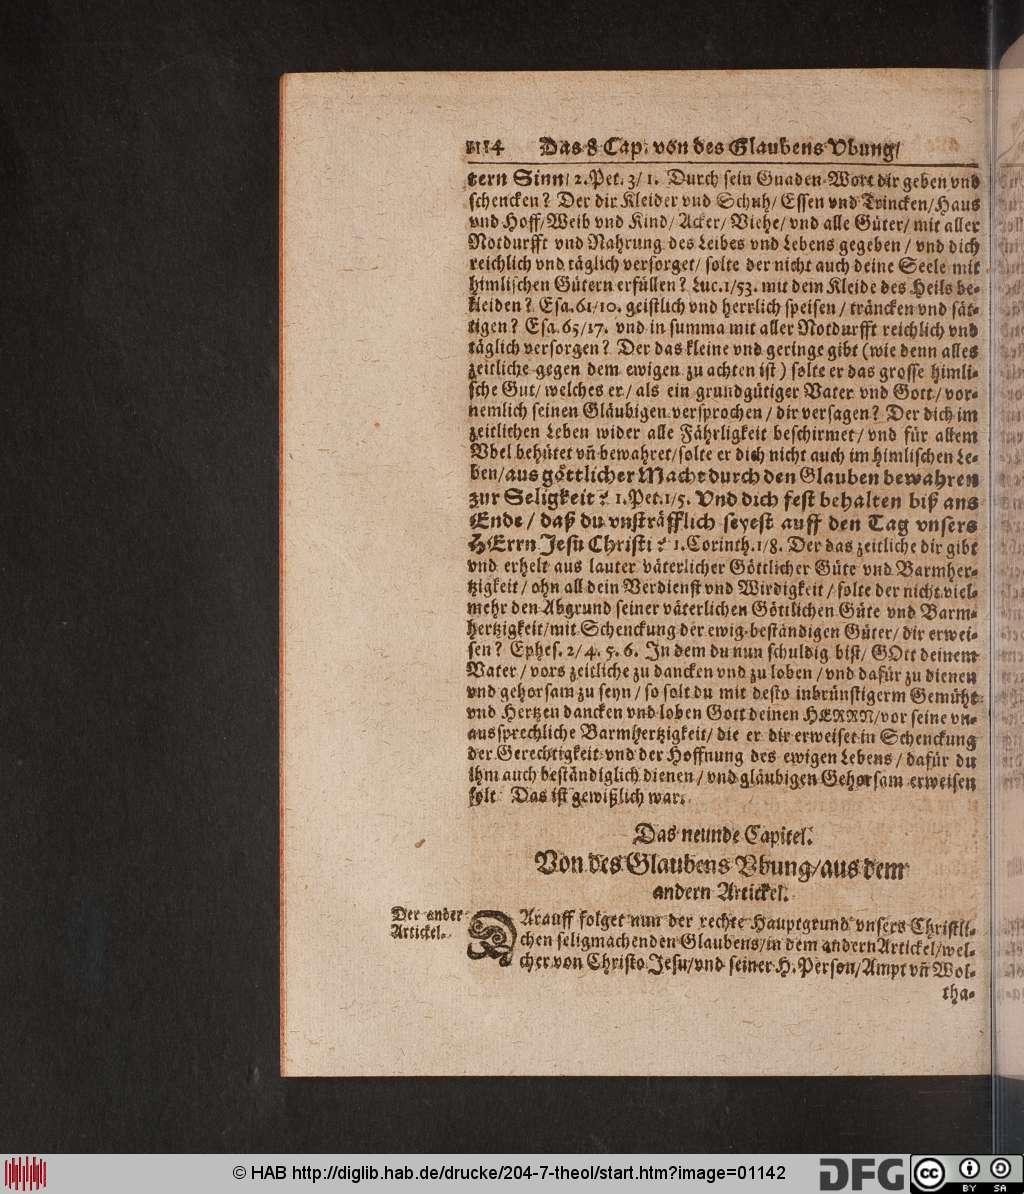 1114 Das 8 Cap. von des Glaubens Vbung/
tern Sinn/ 2. Pet. 3/ 1. Durch sein Gnaden-Wort dir geben vnd
schencken? Der dir Kleider vnd Schuh/ Essen vnd Trincken/ Haus
vnd Hoff/ Weib vnd Kind/ Acker/ Viehe/ vnd alle Güter/ mit aller
Notdurfft vnd Nahrung des Leibes vnd Lebens gegeben / vnd dich
reichlich vnd täglich versorget/ solte der nicht auch deine Seele mit
himlischen Gütern erfüllen? Luc. 1/53. mit dem Kleide des Heils be-
kleiden? Esa. 61/10. geistlich vnd herrlich speisen / träncken vnd sät-
tigen? Esa. 65/17. vnd in summa mit aller Notdurfft reichlich vnd
täglich versorgen? Der das kleine vnd geringe gibt (wie denn alles
zeitliche gegen dem ewigen zu achten ist) solte er das grosse himli-
sche Gut/ welches er/ als ein grundgütiger Vater vnd Gott/ vor-
nemlich seinen Gläubigen versprochen / dir versagen? Der dich im
zeitlichen Leben wider alle Fährligkeit beschirmet/ vnd für allem
Vbel behütet vñ bewahret/ solte er dich nicht auch im himlischen Le-
ben/ aus göttlicher Macht durch den Glauben bewahren
zur Seligkeit? 1. Pet. 1/5. Vnd dich fest behalten biß ans
Ende / daß du vnsträfflich seyest auff den Tag vnsers
HErrn Jesu Christi? 1. Corinth. 1/8. Der das zeitliche dir gibt
vnd erhelt aus lauter väterlicher Göttlicher Güte vnd Barmher-
tzigkeit / ohn all dein Verdienst vnd Wirdigkeit / solte der nicht viel-
mehr den Abgrund seiner väterlichen Göttlichen Güte vnd Barm-
hertzigkeit/ mit Schenckung der ewig-beständigen Güter/ dir erwei-
sen? Ephes. 2/ 4. 5. 6. In dem du nun schuldig bist/ GOtt deinem
Vater / vors zeitliche zu dancken vnd zu loben / vnd dafür zu dienen
vnd gehorsam zu seyn / so solt du mit desto inbrünstigerm Gemüht
vnd Hertzen dancken vnd loben Gott deinen HERRN/ vor seine vn-
aussprechliche Barmhertzigkeit/ die er dir erweiset in Schenckung
der Gerechtigkeit vnd der Hoffnung des ewigen Lebens / dafür du
ihm auch beständiglich dienen / vnd gläubigen Gehorsam erweisen
solt. Das ist gewißlich war.
Das neunde Capitel.
Von des Glaubens Vbung/ aus dem
andern Artickel.
Der ander
Artickel.
DArauff folget nun der rechte Hauptgrund vnsers Christli-
chen seligmachenden Glaubens/ in dem andern Artickel/ wel-
cher von Christo Jesu/ vnd seiner H. Person/ Ampt vñ Wol-
tha-
© HAB http://diglib.hab.de/drucke/204-7-theol/start.htm?image=01142
DFG
cc
BY SA